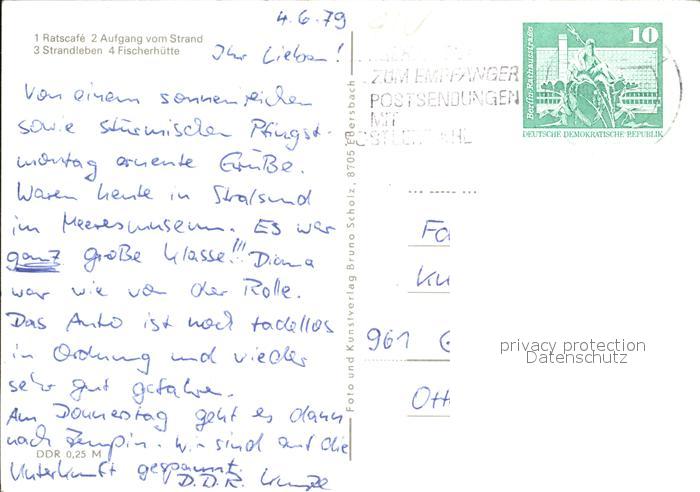 4.6.79
1 Ratscafé 2 Aufgang vom Strand
3 Strandleben 4 Fischerhütte
Ihr Lieben!
Von einem sonnenreichen
sowie stürmischen Pfingst-
montag erneute Grüße.
Waren heute in Stralsund
im Meeresmuseum. Es war
ganz große Klasse!!! Diana
war wie von der Rolle.
Das Auto ist noch tadellos
in Ordnung und wieder
sehr gut gefahren.
Am Donnerstag geht es dann
nach Zempin. Wir sind auf die
DDR 0,25 M
Unterkunft gespannt.
D.D.R.
Foto und Kunstverlag Bruno Scholz, 8705 Ebersbach
ZUM EMPFÄNGER
POSTSENDUNGEN
MIT
10
Berlin, Rathausstraße
DEUTSCHE DEMOKRATISCHE REPUBLIK
Fa
Ku
961 G
Ott
privacy protection
Datenschutz